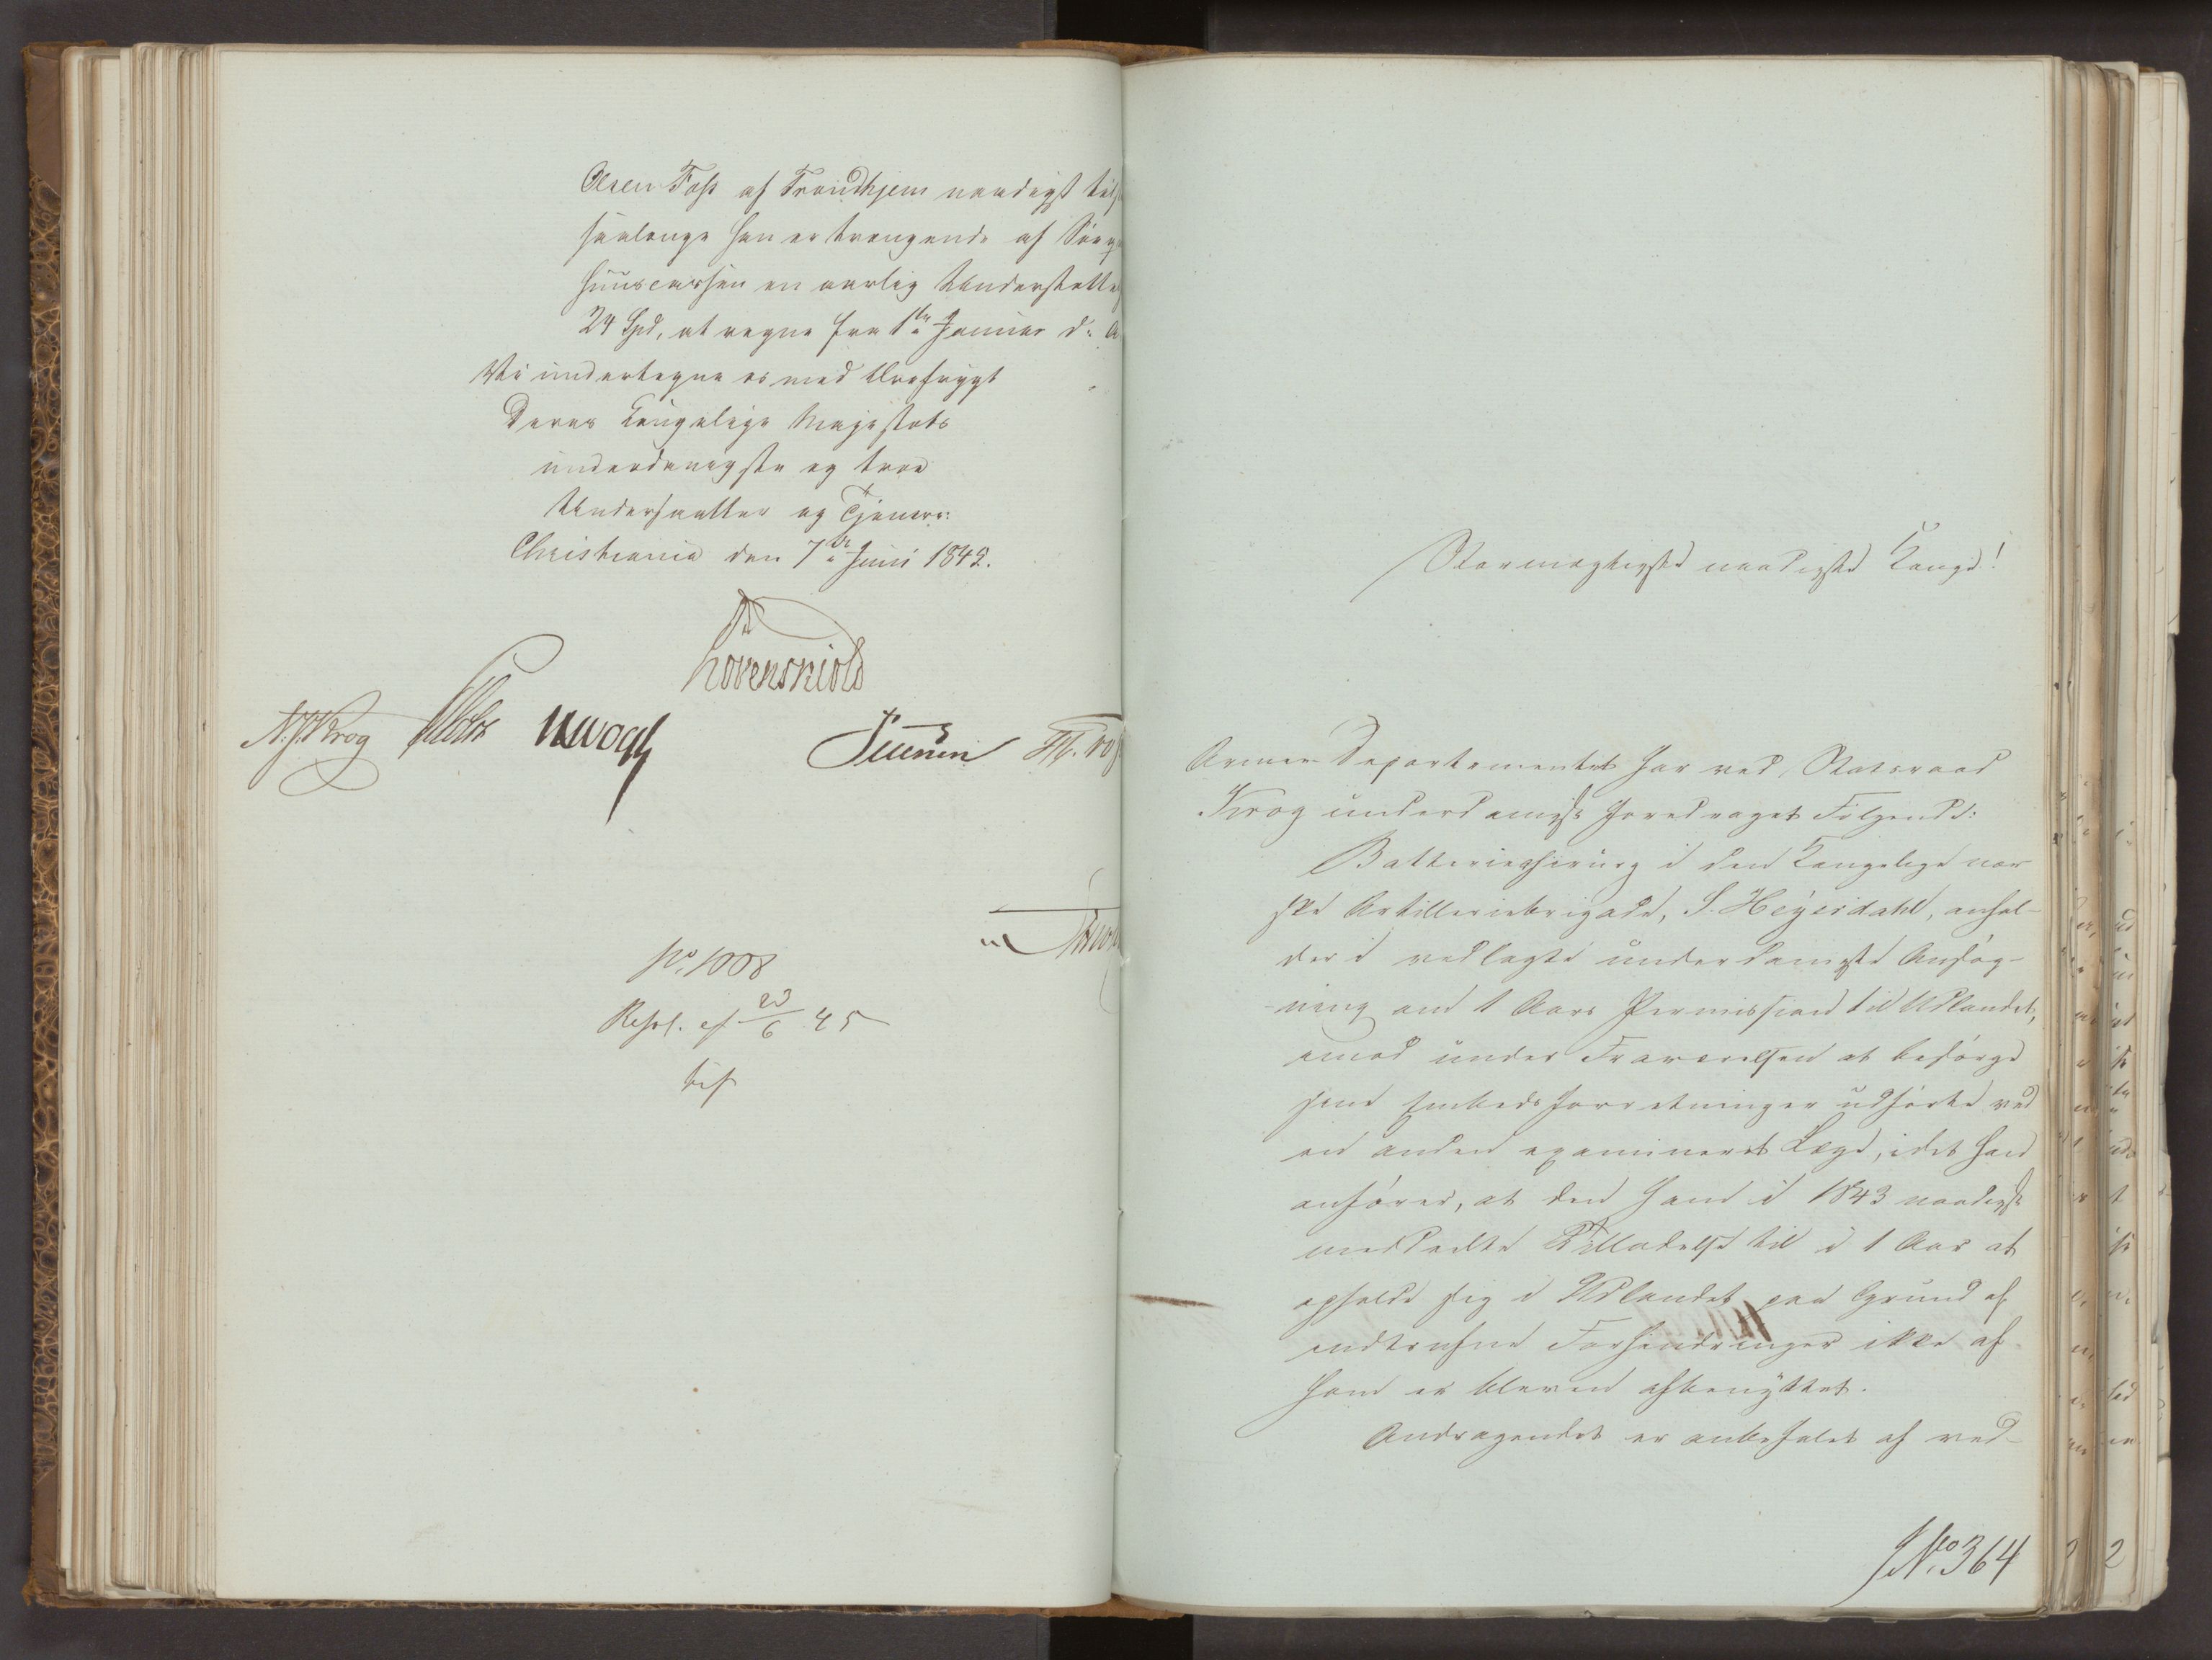 Olsen Foss af Trondhjem naadigst til
saalænge han er trængende af Syge
huuscassen en aarlig Understøttel
24 Spd, at regne fra 1ste Januar d: A
Vi undertegne os med Ærefrygt
Deres Kongelige Majestæts
underdanigste og troe
Undersaatter og Tjenere:
Christiania den 7de Juni 1845.
Løvenskiold
N. J. Krog JHVogt Sibbern
No. 1008
Resol. af 23/6 45
Stormægtigste naadigste Konge!
Armee-Departementet har ved Statsraad
Krog underdanigst foredraget Følgende:
Batterichirurg i den Kongelige nor
ske Artilleriebrigade, S. Heyerdahl, anhol-
der i vedlagte underdanigste Ansøg-
ning om 1 Aars Permission til Udlandet,
imod under Fraværelsen at besørge
sine Embedsforretninger udførte ved
en anden examineret Læge, idet han
anfører, at den ham i 1843 naadigst
meddeelte Tilladelse til i 1 Aar at
opholde sig i Udlandet paa Grund af
indtrufne Forhindringer ikke af
ham er bleven afbenyttet.
Andragendet er anbefalet af ved-
No. 364